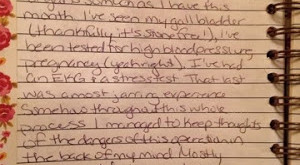 as I have this
month. I've seen my gall bladder
(thankfully it's stone free!), I've
been tested for high blood pressure,
pregnancy (yeah right), I've had
an EKG & a stress test. That last
was a most jarring experience
Somehow through this whole
process I managed to keep thoughts
of the dangers of this operation in
the back of my mind. Mostly